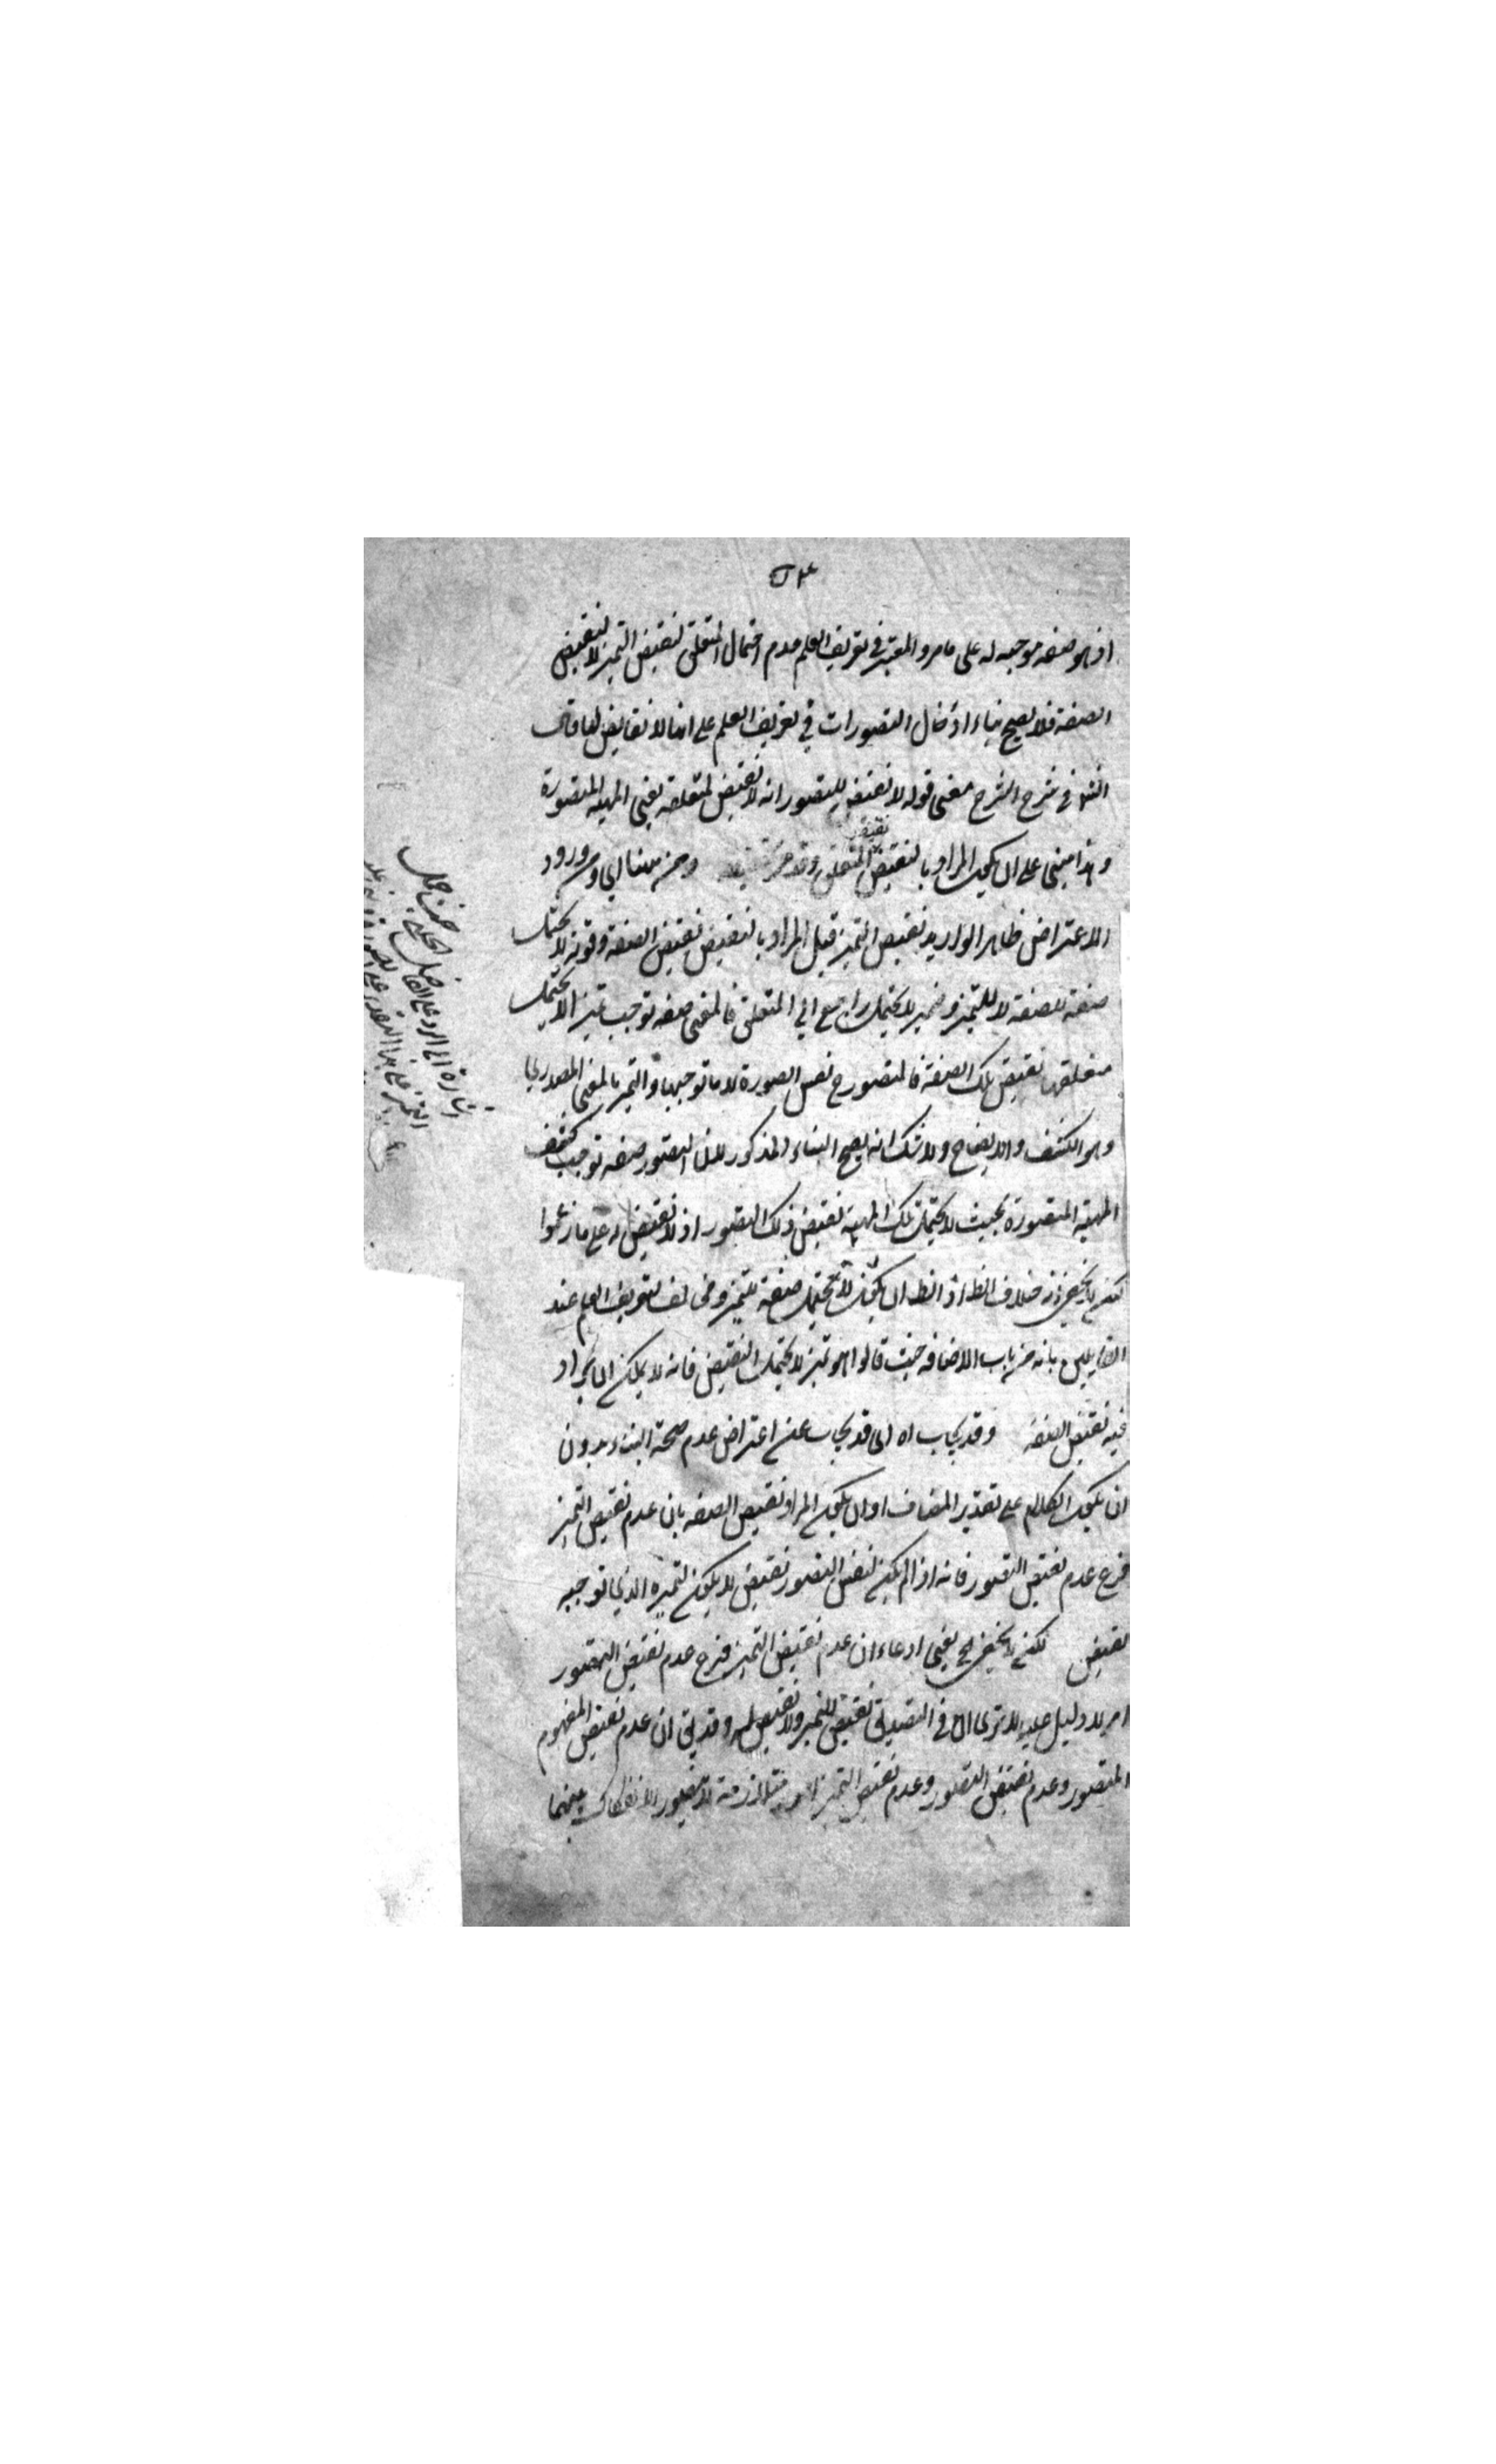 اذ هو صفة موجبة له على ما مر والمعتبر في تعريف العلم عدم احتمال المتعلق لنقيض التميز لا لنقيض
الصفة فلا يصح بناء ادخال التصورات في تعريف العلم على انها لا نقايض لها قال
في شرح الشرح معنى قوله لا نقيض للتصور انه لا نقيض لمتعلقه يعني المهية المتصورة
وهذا مبني على ان يكون المراد بالنقيض نقيض المتعلق ومن ههنا ورود
الاعتراض ظاهر الو اريد نقيض التميز قيل المراد بالنقيض نقيض الصفة وقوله لا يحتمل
صفة للصفة لا للتميز وضمير لا يحتمل راجع الى المتعلق فالمعنى صفة توجب تميزا لا يحتمل
متعلقها نقيض تلك الصفة فالتصور ح نفس الصورة لا ما توجبها والتميز بالمعنى المصدري
وهو الكشف والايضاح ولا شك انه يصح البناء المذكور لان التصور صفة توجب كشف
المهية المتصورة بحيث لا يحتمل تلك المهية نقيض ذلك التصور اذ لا نقيض له على ما زعموا
لكن لا يخفى انه خلاف الظ اذ الظ ان يكون لا يحتمل صفة للتميز ومخالف لتعريف العلم عند
القايلين بانه من باب الاضافة حيث قالوا هو تميز لا يحتمل النقيض فانه لا يمكن ان يراد
فيه نقيض الصفة وقد يجاب اه اى قد يجاب عن اعتراض عدم صحة البناء بدون
ان يكون الكلام على تقدير المضاف او ان يكون المراد نقيض الصفة بان عدم نقيض التميز
فرع عدم نقيض التصور فانه اذا لم يكن لنفس التصور نقيض لا يكون لتميزه الذي توجبه
نقيض لكن لا يخفى اه يعني ادعاء ان عدم نقيض التميز فرع عدم نقيض التصور
امر لا دليل عليه الا ترى ان في التصديق نقيض للتميز ولا نقيض له وقد يق ان عدم نقيض المفهوم
المتصور وعدم نقيض التصور وعدم نقيض التميز متلازمة لا يتصور الانفكاك بينهما
اشارة الى الرد على الفاضل الجلبي